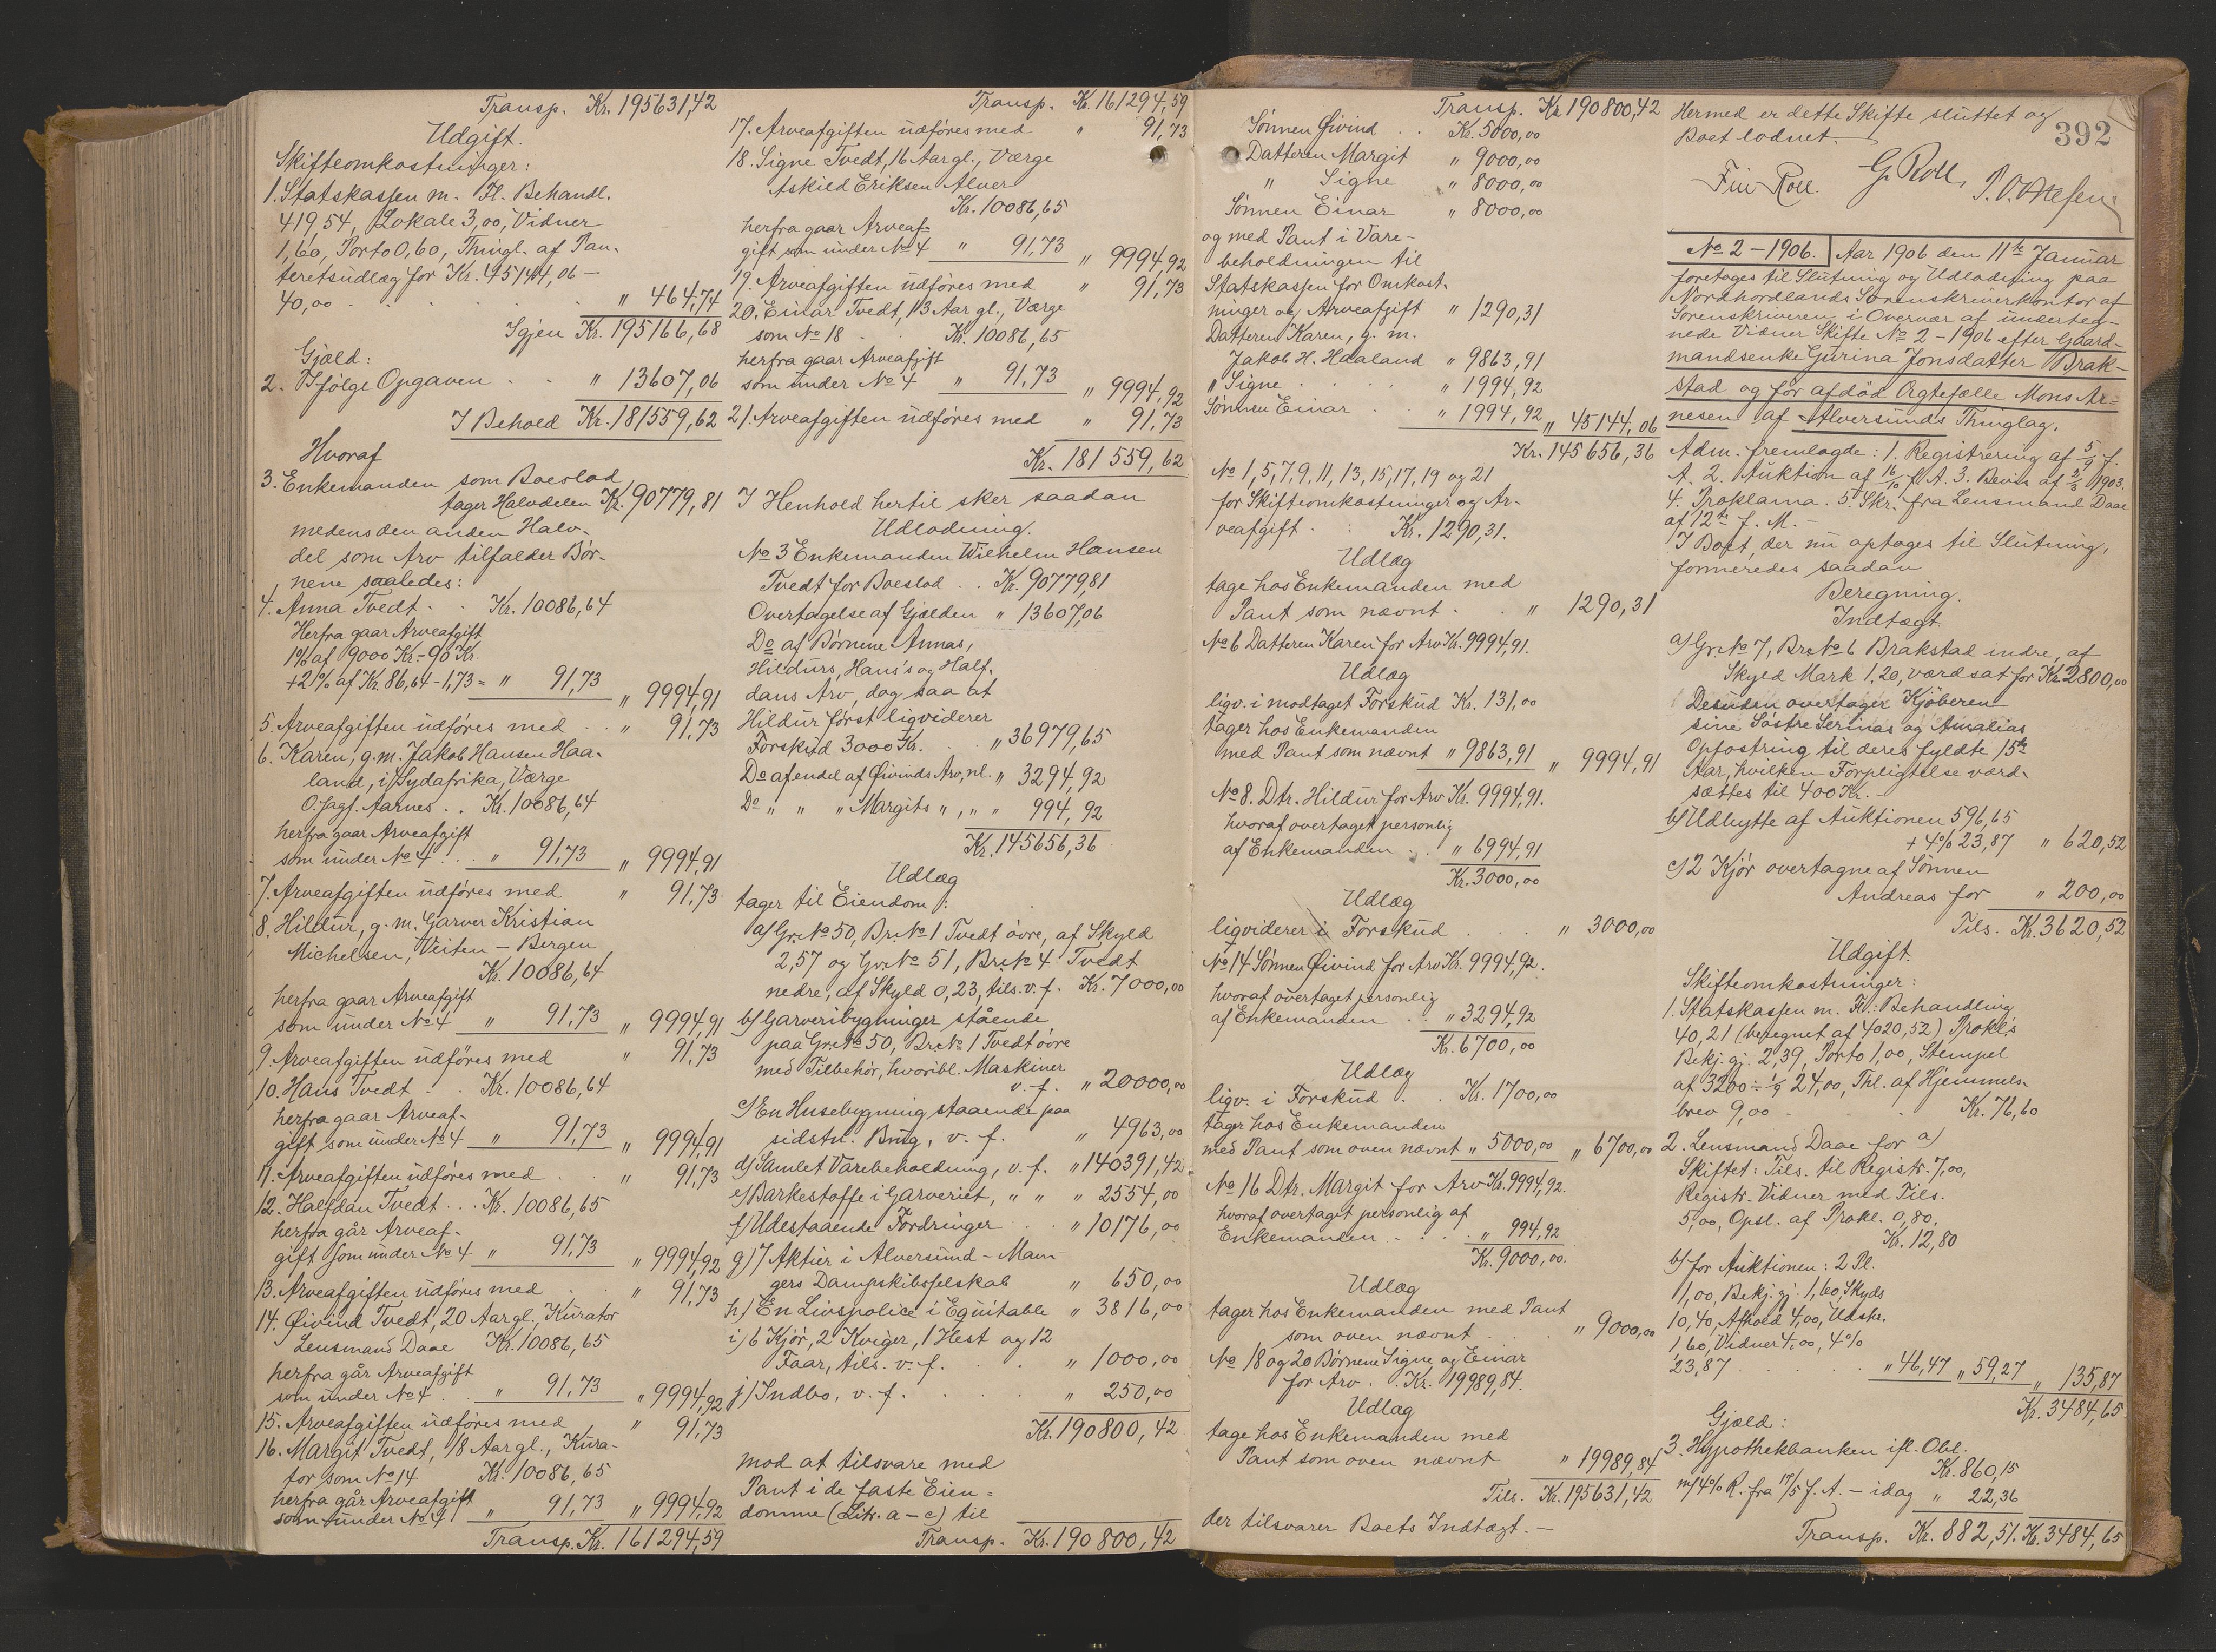 Transp. Kr. 195631,42
Udgift.
Skifteomkostninger:
1. Statskassen m. H. Behandl.
419,54, Lokale 3,00, Vidner
1,60, Porto 0,60, Thingl. af Pan-
teretsudlæg for Kr. 45144,06 —
40,00 . . . . " 464,74
Igjen Kr. 195166,68
Gjæld:
2. Ifølge Opgaven . . " 13607,06
I Behold Kr. 181559,62
Hvoraf
3. Enkemanden som Boeslod
tager Halvdelen Kr. 90779,81
medens den anden Halv-
del som Arv tilfalder Bør-
nene saaledes:
4. Anna Tvedt . . Kr. 10086,64
Herfra gaar Arveafgift
1% af 9000 Kr. = 90 Kr.
+2% af Kr. 86,64 - 1,73 = " 91,73 " 9994,91
5. Arveafgiften udføres med . . " 91,73
6. Karen, g. m. Jakob Hansen Haa-
land, i Sydafrika, Værge
O. sagf. Aarnes . . Kr. 10086,64
herfra gaar Arveafgift
som under No 4 . . " 91,73 " 9994,91
7. Arveafgiften udføres med " 91,73
8. Hildur, g. m. Garver Kristian
Michelsen, Veiten - Bergen
Kr. 10086,64
herfra gaar Arveafgift
som under No 4 " 91,73 " 9994,91
9. Arveafgiften udføres med " 91,73
10. Hans Tvedt . . Kr. 10086,64
herfra gaar Arveaf-
gift som under No 4 " 91,73 " 9994,91
11. Arveafgiften udføres med . . " 91,73
12. Halfdan Tvedt . . . Kr. 10086,65
herfra går Arveaf-
gift som under No 4 " 91,73 " 9994,92
13. Arveafgiften udføres med . . " 91,73
14. Øivind Tvedt, 20 Aar gl., Kurator
Lensmand Daae Kr. 10086,65
herfra går Arveafgift
som under No 4 . . " 91,73 " 9994,92
15. Arveafgiften udføres med " 91,73
16. Margit Tvedt, 18 Aar gl., Kura-
tor som No 14 Kr. 10086,65
herfra går Arveafgift
som under No 4 " 91,73 " 9994,92
Transp. Kr. 161294,59
Transp. Kr. 161294,59
17. Arveafgiften udføres med " 91,73
18. Signe Tvedt, 16 Aar gl., Værge
Askild Eriksen Alver
Kr. 10086,65
herfra gaar Arveaf-
gift som under No 4 " 91,73 " 9994,92
19. Arveafgiften udføres med " 91,73
20. Einar Tvedt, 13 Aar gl., Værge
som No 18 . . Kr. 10086,65
herfra gaar Arveafgift
som under No 4 " 91,73 " 9994,92
21. Arveafgiften udføres med " 91,73
Kr. 181559,62
I Henhold hertil sker saadan
Udlodning.
No 3 Enkemanden Wilhelm Hansen
Tvedt for Boeslod . . Kr. 90779,81
Overtagelse af Gjælden " 13607,06
Do af Børnene Annas,
Hildurs, Hans's og Half-
dans Arv, dog saa at
Hildur først ligviderer
Forskud 3000 Kr. . . " 36979,65
Do af endel af Øivinds Arv, nl. " 3294,92
Do " " " Margits " , " " 994,92
Kr. 145656,36
Udlæg
tager til Eiendom:
a) Gr. No 50, Br. No 1 Tvedt øvre, af Skyld
2,57 og Gr. No 51, Br. No 4 Tvedt
nedre, af Skyld 0,23, tils. v. f. Kr. 7000,00
b) Garveribygninger stående
paa Gr. No 50, Br. No 1 Tvedt øvre
med Tilbehør, hvoribl. Maskiner
v. f. " 20000,00
c) En Husebygning staaende paa
sidstn. Brug, v. f. " 4963,00
d) Samlet Varebeholdning, v. f. " 140391,42
e) Barkestoffe i Garveriet, " " " 2554,00
f) Udestaaende Fordringer . . " 10176,00
g) 7 Aktier i Alversund - Mam-
gers Dampskibsselskab " 650,00
h) En Livspolice i Equitable " 3816,00
i) 6 Kjør, 2 Kviger, 1 Hest og 12
Faar, tils. v. f. . . " 1000,00
j) Indbo, v. f. . . . " 250,00
Kr. 190800,42
mod at tilsvare med
Pant i de faste Eien-
domme (Litr. a - c) til
Transp. Kr. 190800,42
Transp. Kr. 190800,42
Sønnen Øivind . . Kr. 5000,00
Datteren Margit " 9000,00
" Signe " 8000,00
Sønnen Einar " 8000,00
og med Pant i Vare-
beholdningen til
Statskassen for Omkost-
ninger og Arveafgift " 1290,31
Datteren Karen, g. m.
Jakob H. Haaland " 9863,91
" Signe . . . " 1994,92
Sønnen Einar . . " 1994,92 " 45144,06
Kr. 145656,36
No 1, 5, 7, 9, 11, 13, 15, 17, 19 og 21
for Skifteomkostninger og Ar-
veafgift . . Kr. 1290,31.
Udlæg
tage hos Enkemanden med
Pant som nævnt . . " 1290,31
No 6 Datteren Karen for Arv Kr. 9994,91.
Udlæg
ligv. i modtaget Forskud Kr. 131,00
tager hos Enkemanden
med Pant som nævnt " 9863,91 " 9994,91
No 8. Dtr. Hildur for Arv Kr. 9994,91.
hvoraf overtaget personlig
af Enkemanden . . " 6994,91
Kr. 3000,00
Udlæg
ligviderer i Forskud . . . " 3000,00
No 14 Sønnen Øivind for Arv Kr. 9994,92.
hvoraf overtaget personlig
af Enkemanden . " 3294,92
Kr. 6700,00
Udlæg
ligv. i Forskud . . Kr. 1700,00
tager hos Enkemanden
med Pant som oven nævnt " 5000,00 " 6700,00
No 16 Dtr. Margit for Arv Kr. 9994,92.
hvoraf overtaget personlig af
Enkemanden . . . " 994,92
Kr. 9000,00.
Udlæg
tager hos Enkemanden med Pant
som oven nævnt . . " 9000,00
No 18 og 20 Børnene Signe og Einar
for Arv . . Kr. 19989,84.
Udlæg
tage hos Enkemanden med
Pant som oven nævnt " 19989,84
Tils. Kr. 195631,42
der tilsvarer Boets Indtægt. —
Hermed er dette Skifte sluttet og
Boet lodnet.
392
Fin Roll. G. Roll,
No 2 - 1906. Aar 1906 den 11te Januar
foretoges til Slutning og Udlodning paa
Nordhordlands Sorenskriverkontor af
Sorenskriveren i Overvær af underteg-
nede Vidner Skifte No 2 - 1906 efter Gaard-
mandsenke Gurina Jonsdatter Brak-
stad og før afdød Ægtefælle Mons Ar-
nesen af Alversunds Thinglag.
Adm. fremlagde: 1. Registrering af 5/9 f.
A. 2. Auktion af 16/10 f. A. 3. Bevis af 2/3 1903.
4. Proklama. 5 Skr. fra Lensmand Daae
af 12te f. M. —
I Boet, der nu optages til Slutning,
formeredes saadan
Beregning.
Indtægt.
a) Gr. No 7, Br. No 6 Brakstad indre, af
Skyld Mark 1,20, værdsat for Kr. 2800,00
Desuden overtager Kjøberen
sine Søstre Serinas og Amalias
Opfostring til deres fyldte 15de
Aar, hvilken Forpligtelse værd-
sættes til 400 Kr. —
b) Udbytte af Auktionen 596,65
+ 4% 23,87 " 620,52
c) 2 Kjør overtagne af Sønnen
Andreas for " 200,00
Tils. Kr. 3620,52
Udgift.
Skifteomkostninger:
1. Statskassen m. H.: Behandling
40,21 (beregnet af 4020,52) Prokl's
Bekj. gj. 2,39, Porto 1,00, Stempel
af 3200 ÷ 1/9 24,00, Thl. af Hjemmels-
brev 9,00 . . . Kr. 76,60
2. Lensmand Daae for a)
Skiftet: Tils. til Registr. 7,00,
Registr. Vidner med Tils.
5,00, Opsl. af Prokl. 0,80.
Kr. 12,80
b) for Auktionen: 2 Pl.
1,00, Bekj. gj. 1,60, Skyds
10,40, Afhold 4,00, Udskr.
1,60, Vidner 4,00, 4%
23,87 . . . " 46,47 " 59,27 " 135,87
Kr. 3484,65
Gjæld:
3. Hypothekbanken ifl. Obl.
Kr. 860,15
m/4% R. fra 17/5 f. A. - idag " 22,36
Transp. Kr. 882,51. Kr. 3484,65